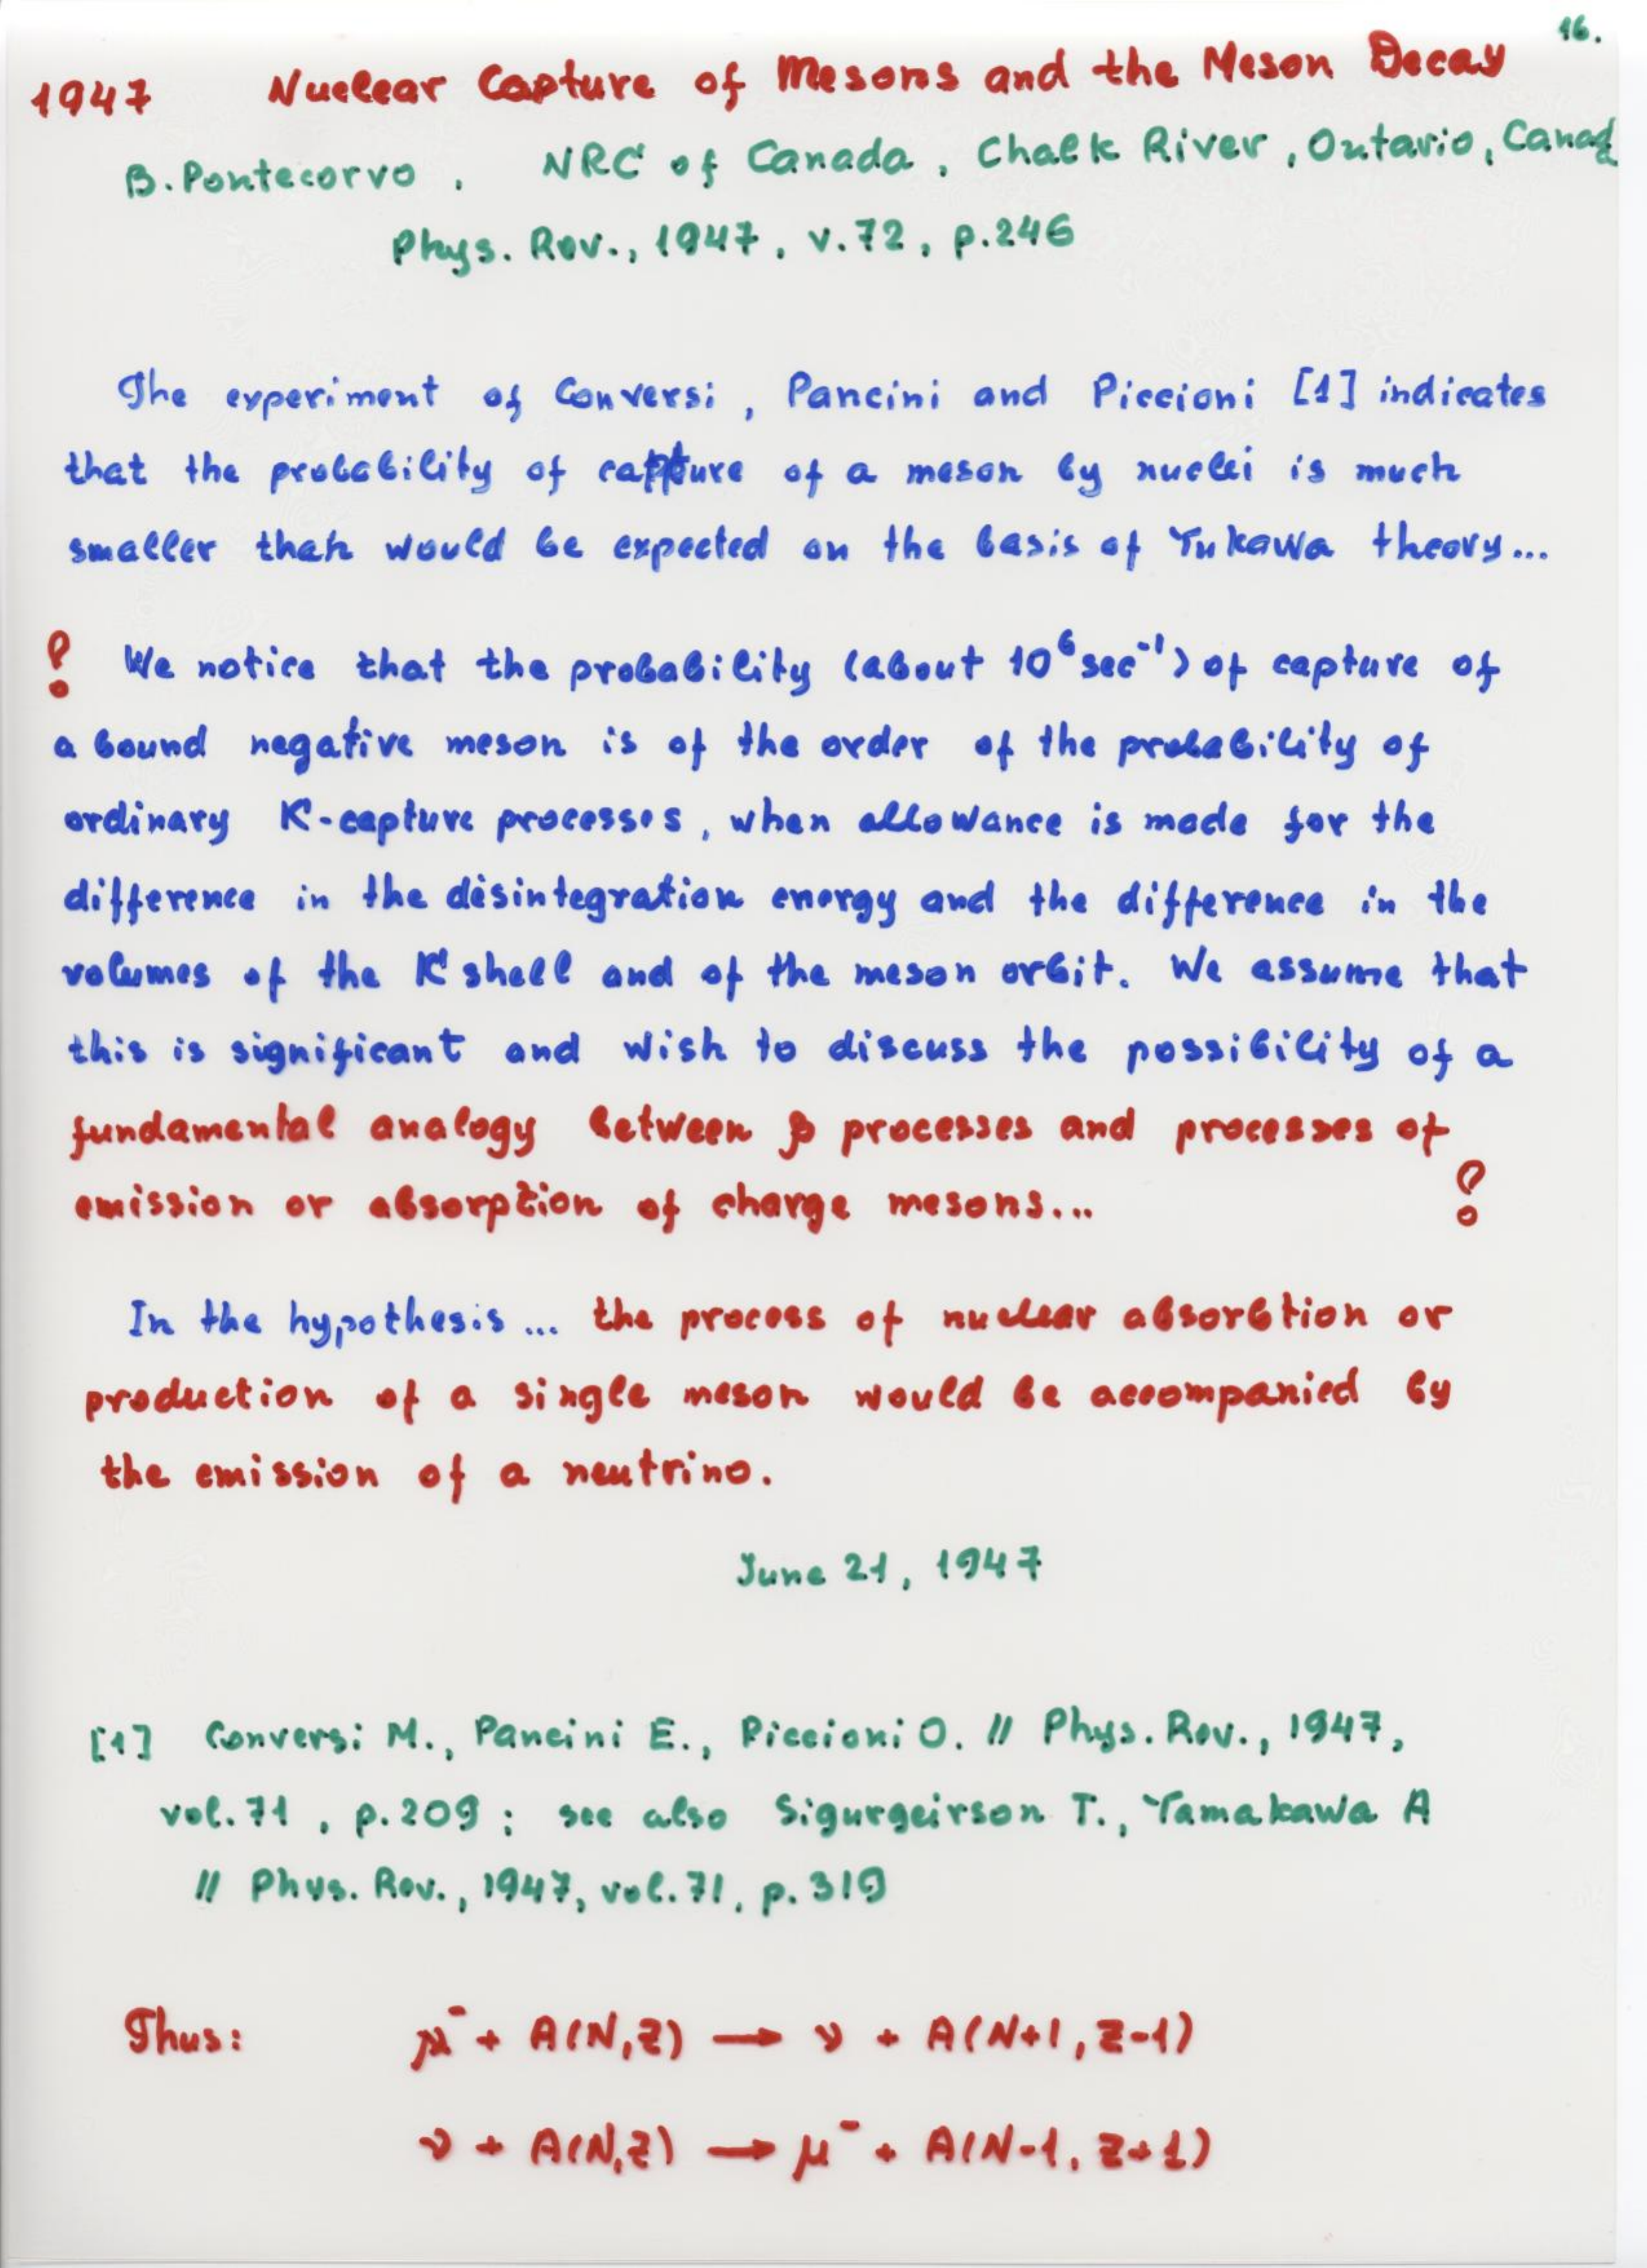 16.
1947 Nuclear Capture of Mesons and the Meson Decay
B. Pontecorvo, NRC of Canada, Chalk River, Ontario, Canada
Phys. Rev., 1947, v.72, p.246
The experiment of Conversi, Pancini and Piccioni [1] indicates
that the probability of capture of a meson by nuclei is much
smaller than would be expected on the basis of Yukawa theory...
! We notice that the probability (about 10⁶ sec⁻¹) of capture of
a bound negative meson is of the order of the probability of
ordinary K-capture processes, when allowance is made for the
difference in the disintegration energy and the difference in the
volumes of the K shell and of the meson orbit. We assume that
this is significant and wish to discuss the possibility of a
fundamental analogy between β processes and processes of
emission or absorption of charge mesons... !
In the hypothesis... the process of nuclear absorbtion or
production of a single meson would be accompanied by
the emission of a neutrino.
June 21, 1947
[1] Conversi M., Pancini E., Piccioni O. // Phys. Rev., 1947,
vol. 71, p. 209; see also Sigurgeirson T., Yamakawa A
// Phys. Rev., 1947, vol. 71, p. 319
Thus: μ⁻ + A(N,Z) → ν + A(N+1, Z-1)
ν + A(N,Z) → μ⁻ + A(N-1, Z+1)